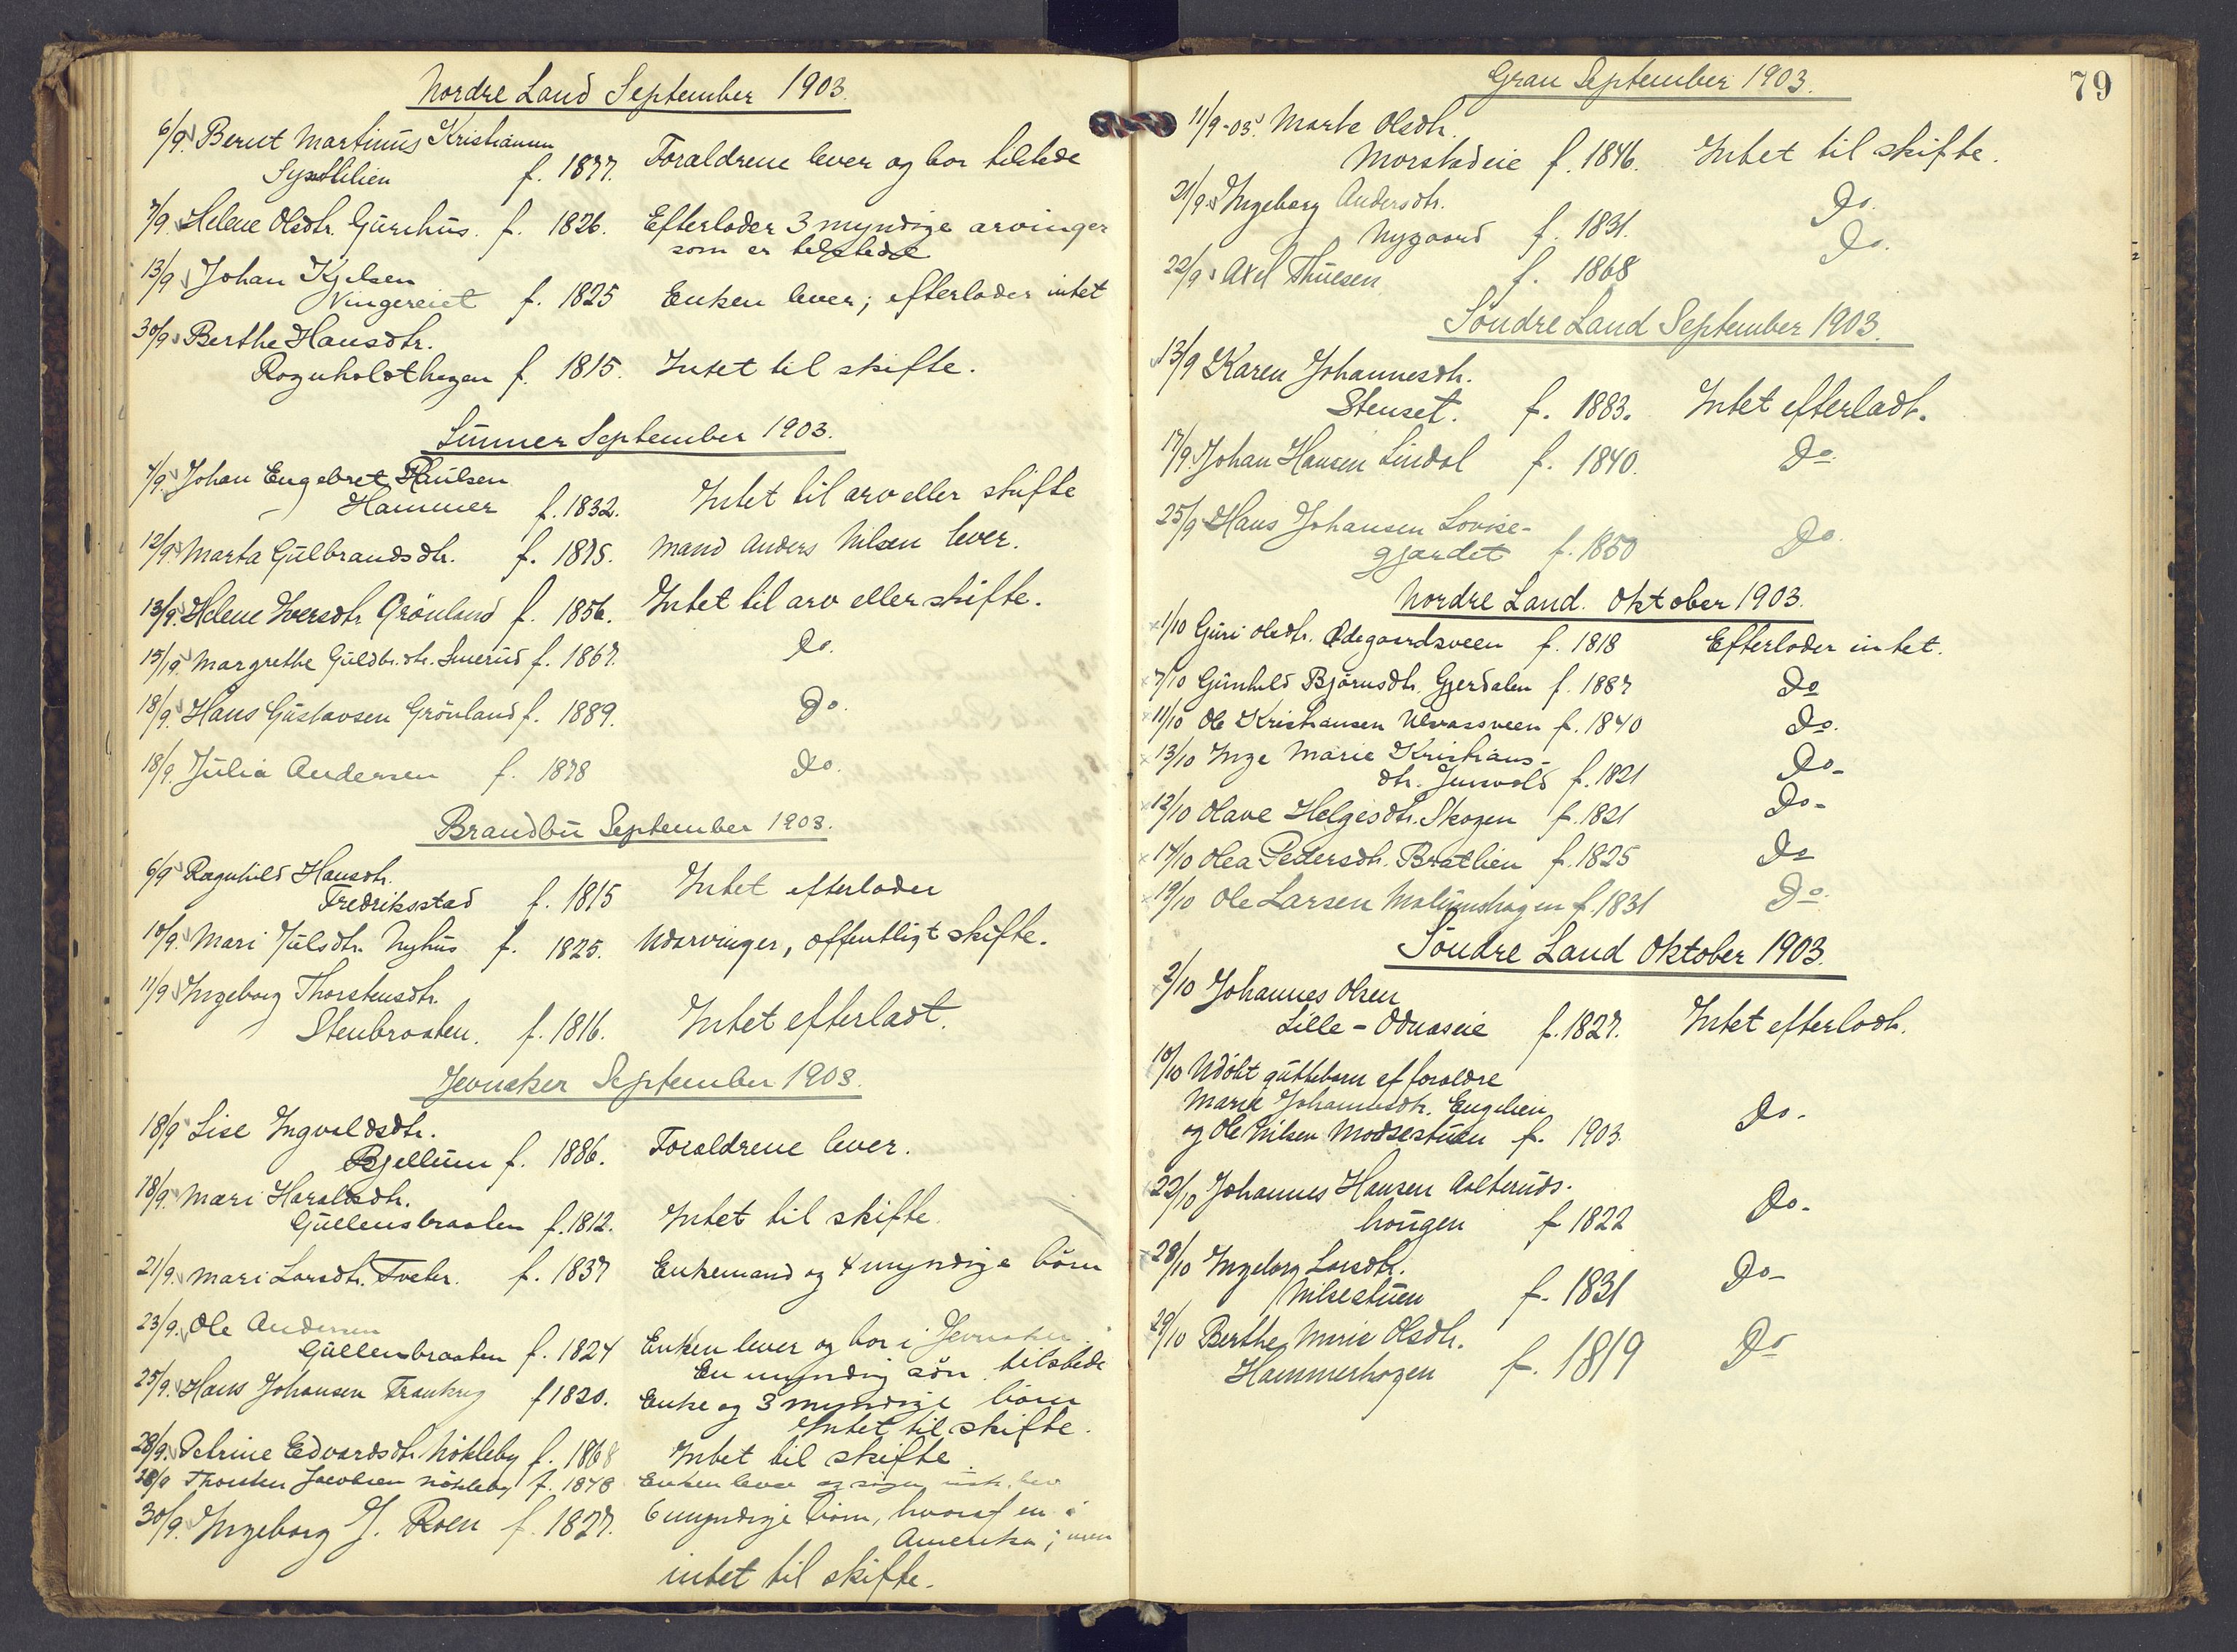 Nordre Land September 1903.
6/9. Bernt Martinus Kristiansen
Synstelien f. 1877. Forældrene lever og bor tilstede
7/9. Helene Olsdtr. Guruhus. f. 1826. Efterlader 3 myndige arvinger
som er tilstede
13/9 Johan Kjelsen
Vingereiet f. 1825 Enken lever; efterlader intet
30/9 Berthe Hansdtr.
Rognholdthagen f. 1815. Intet til skifte.
Lunner September 1903.
7/9. Johan Engebret Paulsen
Hammer f. 1832. Intet til arv eller skifte
12/9. Marta Gulbrandsdtr. f. 1875. Mand Anders Nilsen lever.
13/9. Helene Iversdtr Grönland f. 1856. Intet til arv eller skifte.
15/9. Margrethe Guldbr.dtr. Smerud f. 1867. Do.
18/9. Hans Gustavsen Grönland f. 1889. Do.
18/9. Julia Andersen f. 1878 Do.
Brandbu September 1903.
6/9 Ragnhild Hansdtr.
Fredriksstad f. 1815 Intet efterlader
10/9. Mari Julsdtr. Nyhus f. 1825. Udarvinger, offentligt skifte.
11/9 Ingeborg Thorstensdtr.
Stenbraaten. f. 1816. Intet efterladt.
Jevnaker September 1903.
18/9 Lise Ingvaldsdtr.
Bjellum f. 1886. Forældrene lever.
18/9. Mari Haraldsdtr.
Gullensbraaten f. 1812. Intet til skifte.
21/9. Mari Larsdtr. Tveter. f. 1837 Enkemand og 4 myndige börn
23/9. Ole Andersen
Gullensbraaten f. 1824 Enken lever og bor i Jevnaker.
En myndig sön tilstede
25/9. Hans Johansen f 1820. Enke og 3 myndige börn
Intet til skifte.
28/9. Petrine Edvardsdtr. Nökleby f. 1868 Intet til skifte
28/9 Thorsten Jacobsen Nökleby f. 1848 Enken lever og
30/9. Ingeborg J. Roen f. 1827. 6 myndige börn, hvoraf en i
Amerika; men
intet til skifte.
79
Gran September 1903.
11/9-03. Marte Olsdtr.
Morstadeie f. 1846. Intet til skifte.
21/9. Ingeborg Andersdtr.
Nygaard f. 1831. Do.
22/9 Axel Thuesen f. 1868 Do.
Söndre Land September 1903.
13/9 Karen Johannesdtr.
Stenset. f. 1883. Intet efterladt.
17/9. Johan Hansen Lindal f. 1840. Do.
25/9 Hans Johansen Lovise-
gjærdet f. 1850 Do.
Nordre Land. Oktober 1903.
1/10 Guri Olsdtr. Ødegaardsveen f. 1818 Efterlader intet.
7/10 Gunhild Björnsdtr. Gjerdalen f. 1887 Do
11/10 Ole Kristiansen f. 1840 Do.
13/10 Inge Marie Kristians-
dtr. Jensvold f. 1821 Do-
12/10 Olave Helgesdtr. Skogen f. 1821 Do-
17/10 Olea Pedersdtr. Bratlien f. 1825 Do
19/10 Ole Larsen Malumshagen f. 1831 Do.
Söndre Land Oktober 1903.
2/10 Johannes Olsen
Lille-Odnæseie f. 1827. Intet efterladt.
10/10 Udöbt guttebarn af forældre
Marie Johannesdtr. Engelien
og Ole Nilsen Modsestuen f. 1903. Do.
22/10 Johannes Hansen
haugen f 1822 Do-
28/10 Ingeborg Larsdtr.
Nilsestuen f. 1831 Do-
29/10 Berthe Marie Olsdtr.
Hammerhagen f. 1819 Do